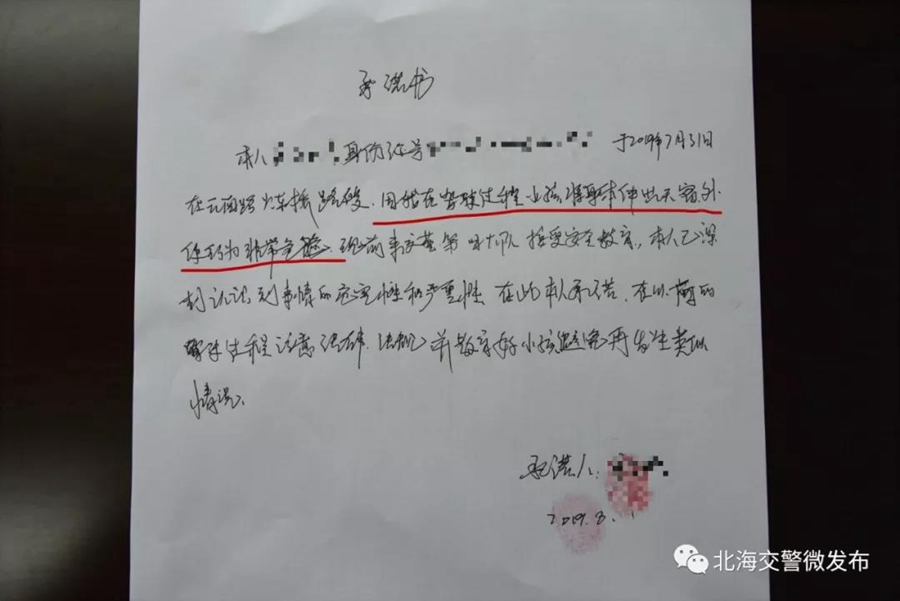 承诺书
本人 身份证号 于2019年7月31日
在云南路火车桥路段,因我在驾驶过程小孩将身体伸出天窗外
行为非常危险,现前来交警第四大队接受安全教育,本人已深
刻认识到事情的危害性和严重性,在此本人承诺,在以后的
驾驶过程注意法律、法规,并教育好小孩避免再发生类似
情况。
承诺人:
2019.8.1
北海交警微发布